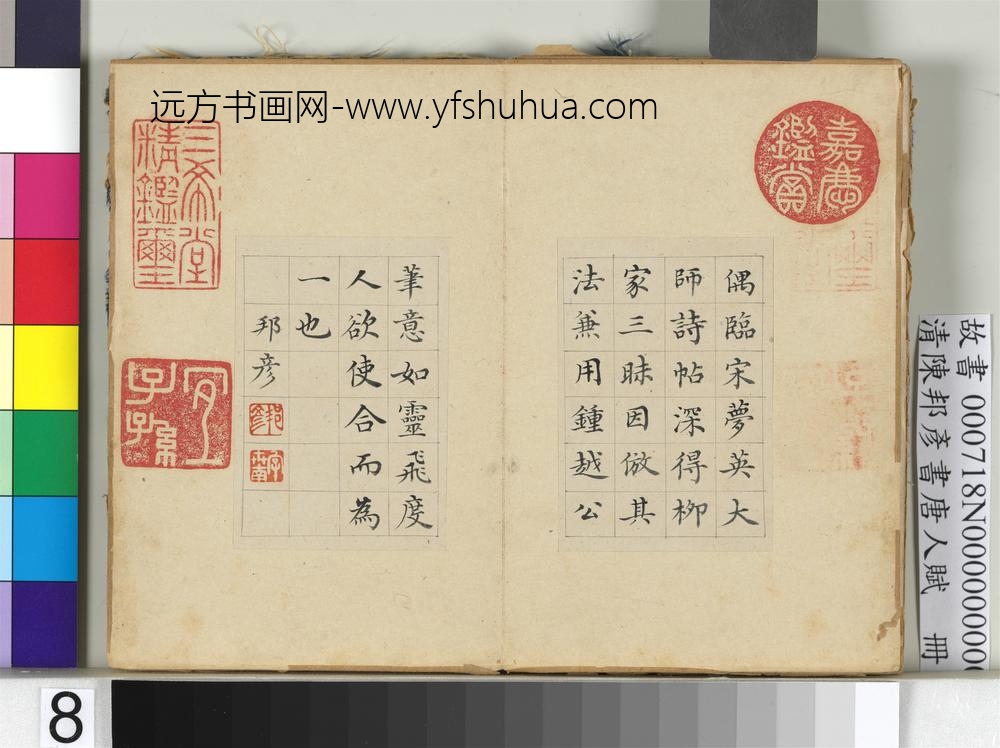 远方书画网-www.yfshuhua.com
嘉慶鑑賞
偶臨宋夢英大
師詩帖深得栁
家三昧因倣其
法兼用鍾越公
筆意如靈飛度
人欲使合而為
一也
邦彥
邦彥
三希堂
精鑑璽
宜
子孫
故書 000718N00000000
清陳邦彥書唐人賦 冊
8